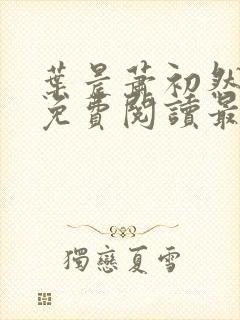 葉晨蕭初然
免費閱讀最
獨戀夏雪